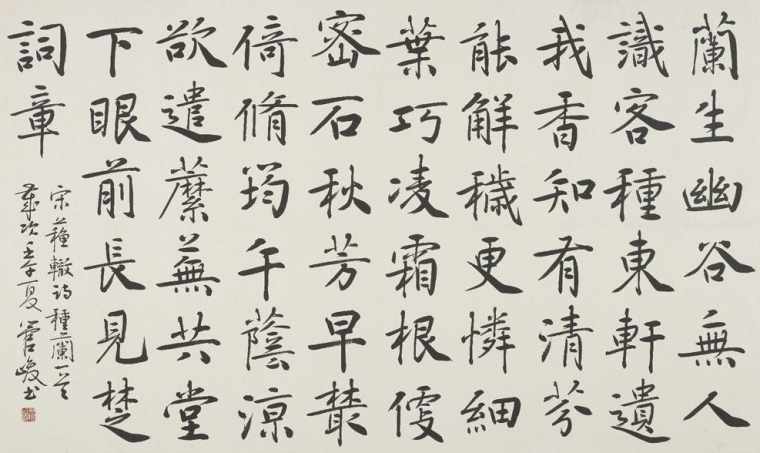 蘭生幽谷無人
識客種東軒遺
我香知有清芬
能解穢更憐細
葉巧凌霜根便
密石秋芳早叢
倚脩筠午蔭涼
欲遣蘪蕪共堂
下眼前長見楚
詞章
宋蘇轍詩種蘭一首
歲次壬午夏管峻书